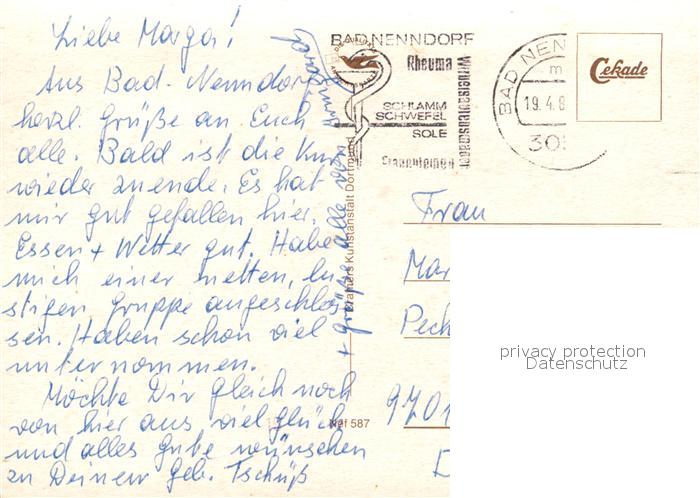 Liebe Marga!
Aus Bad-Nenndorf
herzl. Grüße an Euch
alle. Bald ist die Kur
wieder zuende. Es hat
mir gut gefallen hier.
Essen + Wetter gut. Habe
mich einer netten, lu-
stigen Gruppe angeschlos-
sen. Haben schon viel
unternommen.
Möchte Dir gleich noch
von hier aus viel Glück
und alles Gute wünschen
zu Deinem Geb. Tschüß
+ Grüße alle von
Kramers Kunstanstalt Dortmund
Naf 587
BAD NENNDORF
Rheuma
Wirbelsäulenschäden
SCHLAMM
SCHWEFEL
SOLE
Frauenleiden
BAD NEN
19.4.8
30
Cekade
Frau
Mar
Pech
privacy protection
Datenschutz